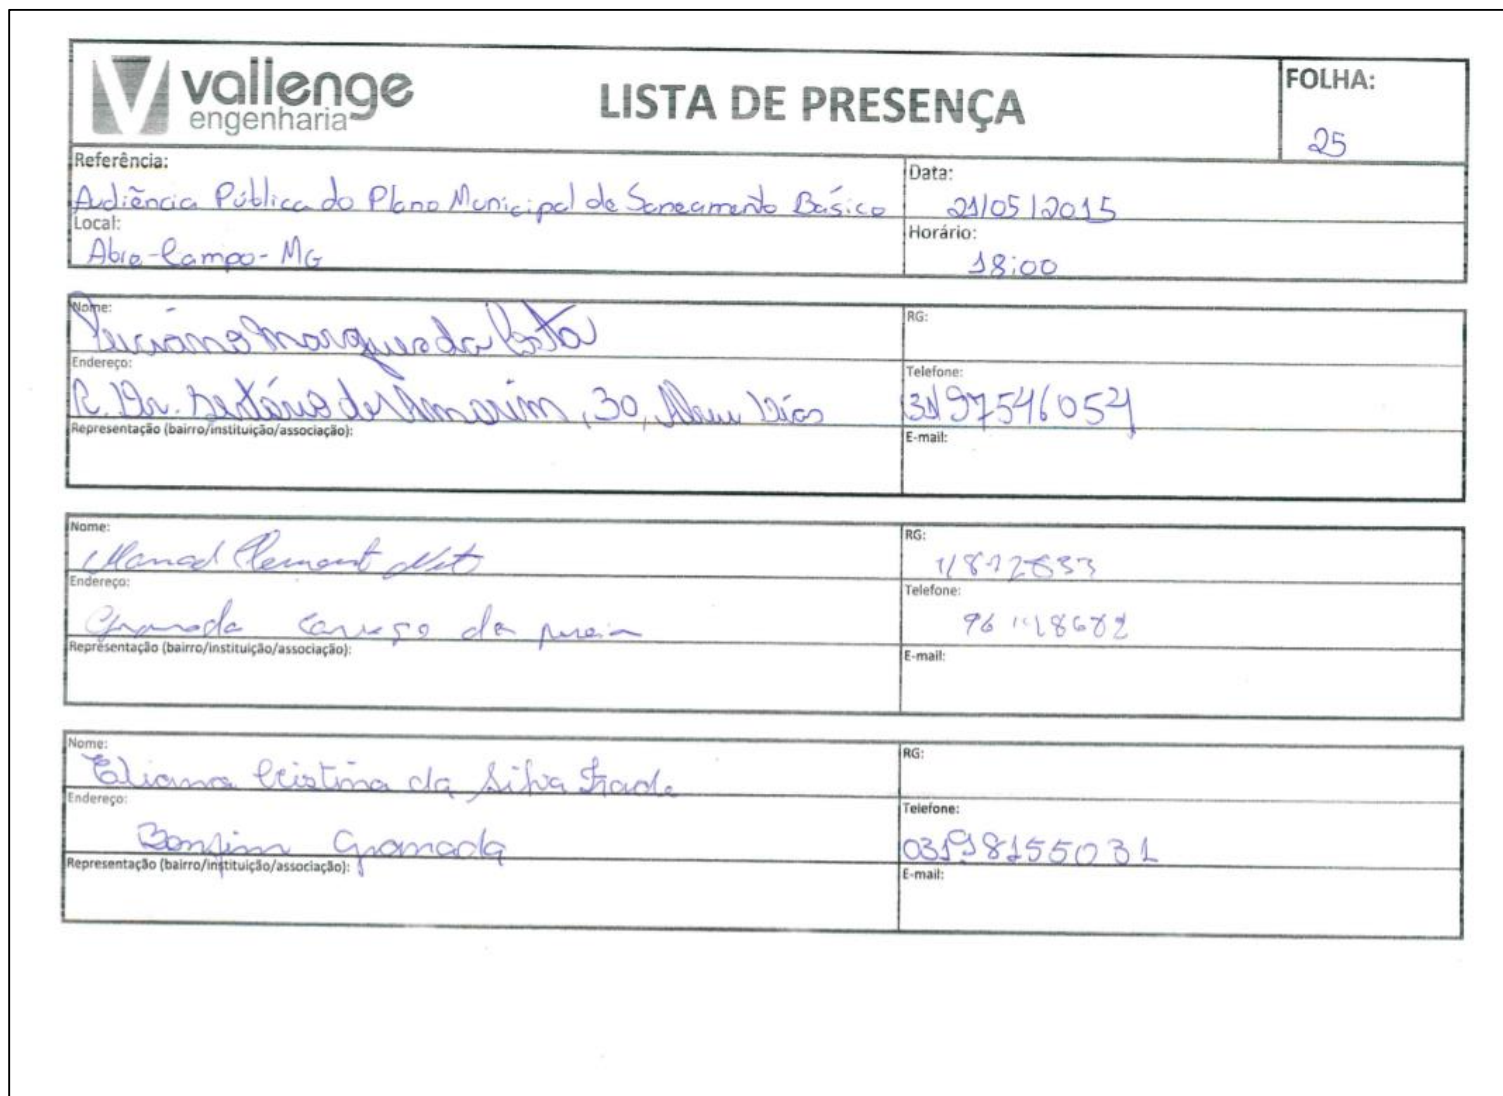 vallenge
engenharia
LISTA DE PRESENÇA
FOLHA:
25
Referência:
Audiência Pública do Plano Municipal de Saneamento Básico
Data:
21/05/2015
Local:
Abre-Campo-MG
Horário:
18:00
Nome:
Luciano Marques da Costa
RG:
Endereço:
R. Dr. de Amorim, 30,
Telefone:
31 97546054
Representação (bairro/instituição/associação):
E-mail:
Nome:
Manoel
RG:
Endereço:
Granada da
Telefone:
Representação (bairro/instituição/associação):
E-mail:
Nome:
Eliana Cristina da Silva Frade
RG:
Endereço:
Bonfim Granada
Telefone:
03198155031
Representação (bairro/instituição/associação):
E-mail: